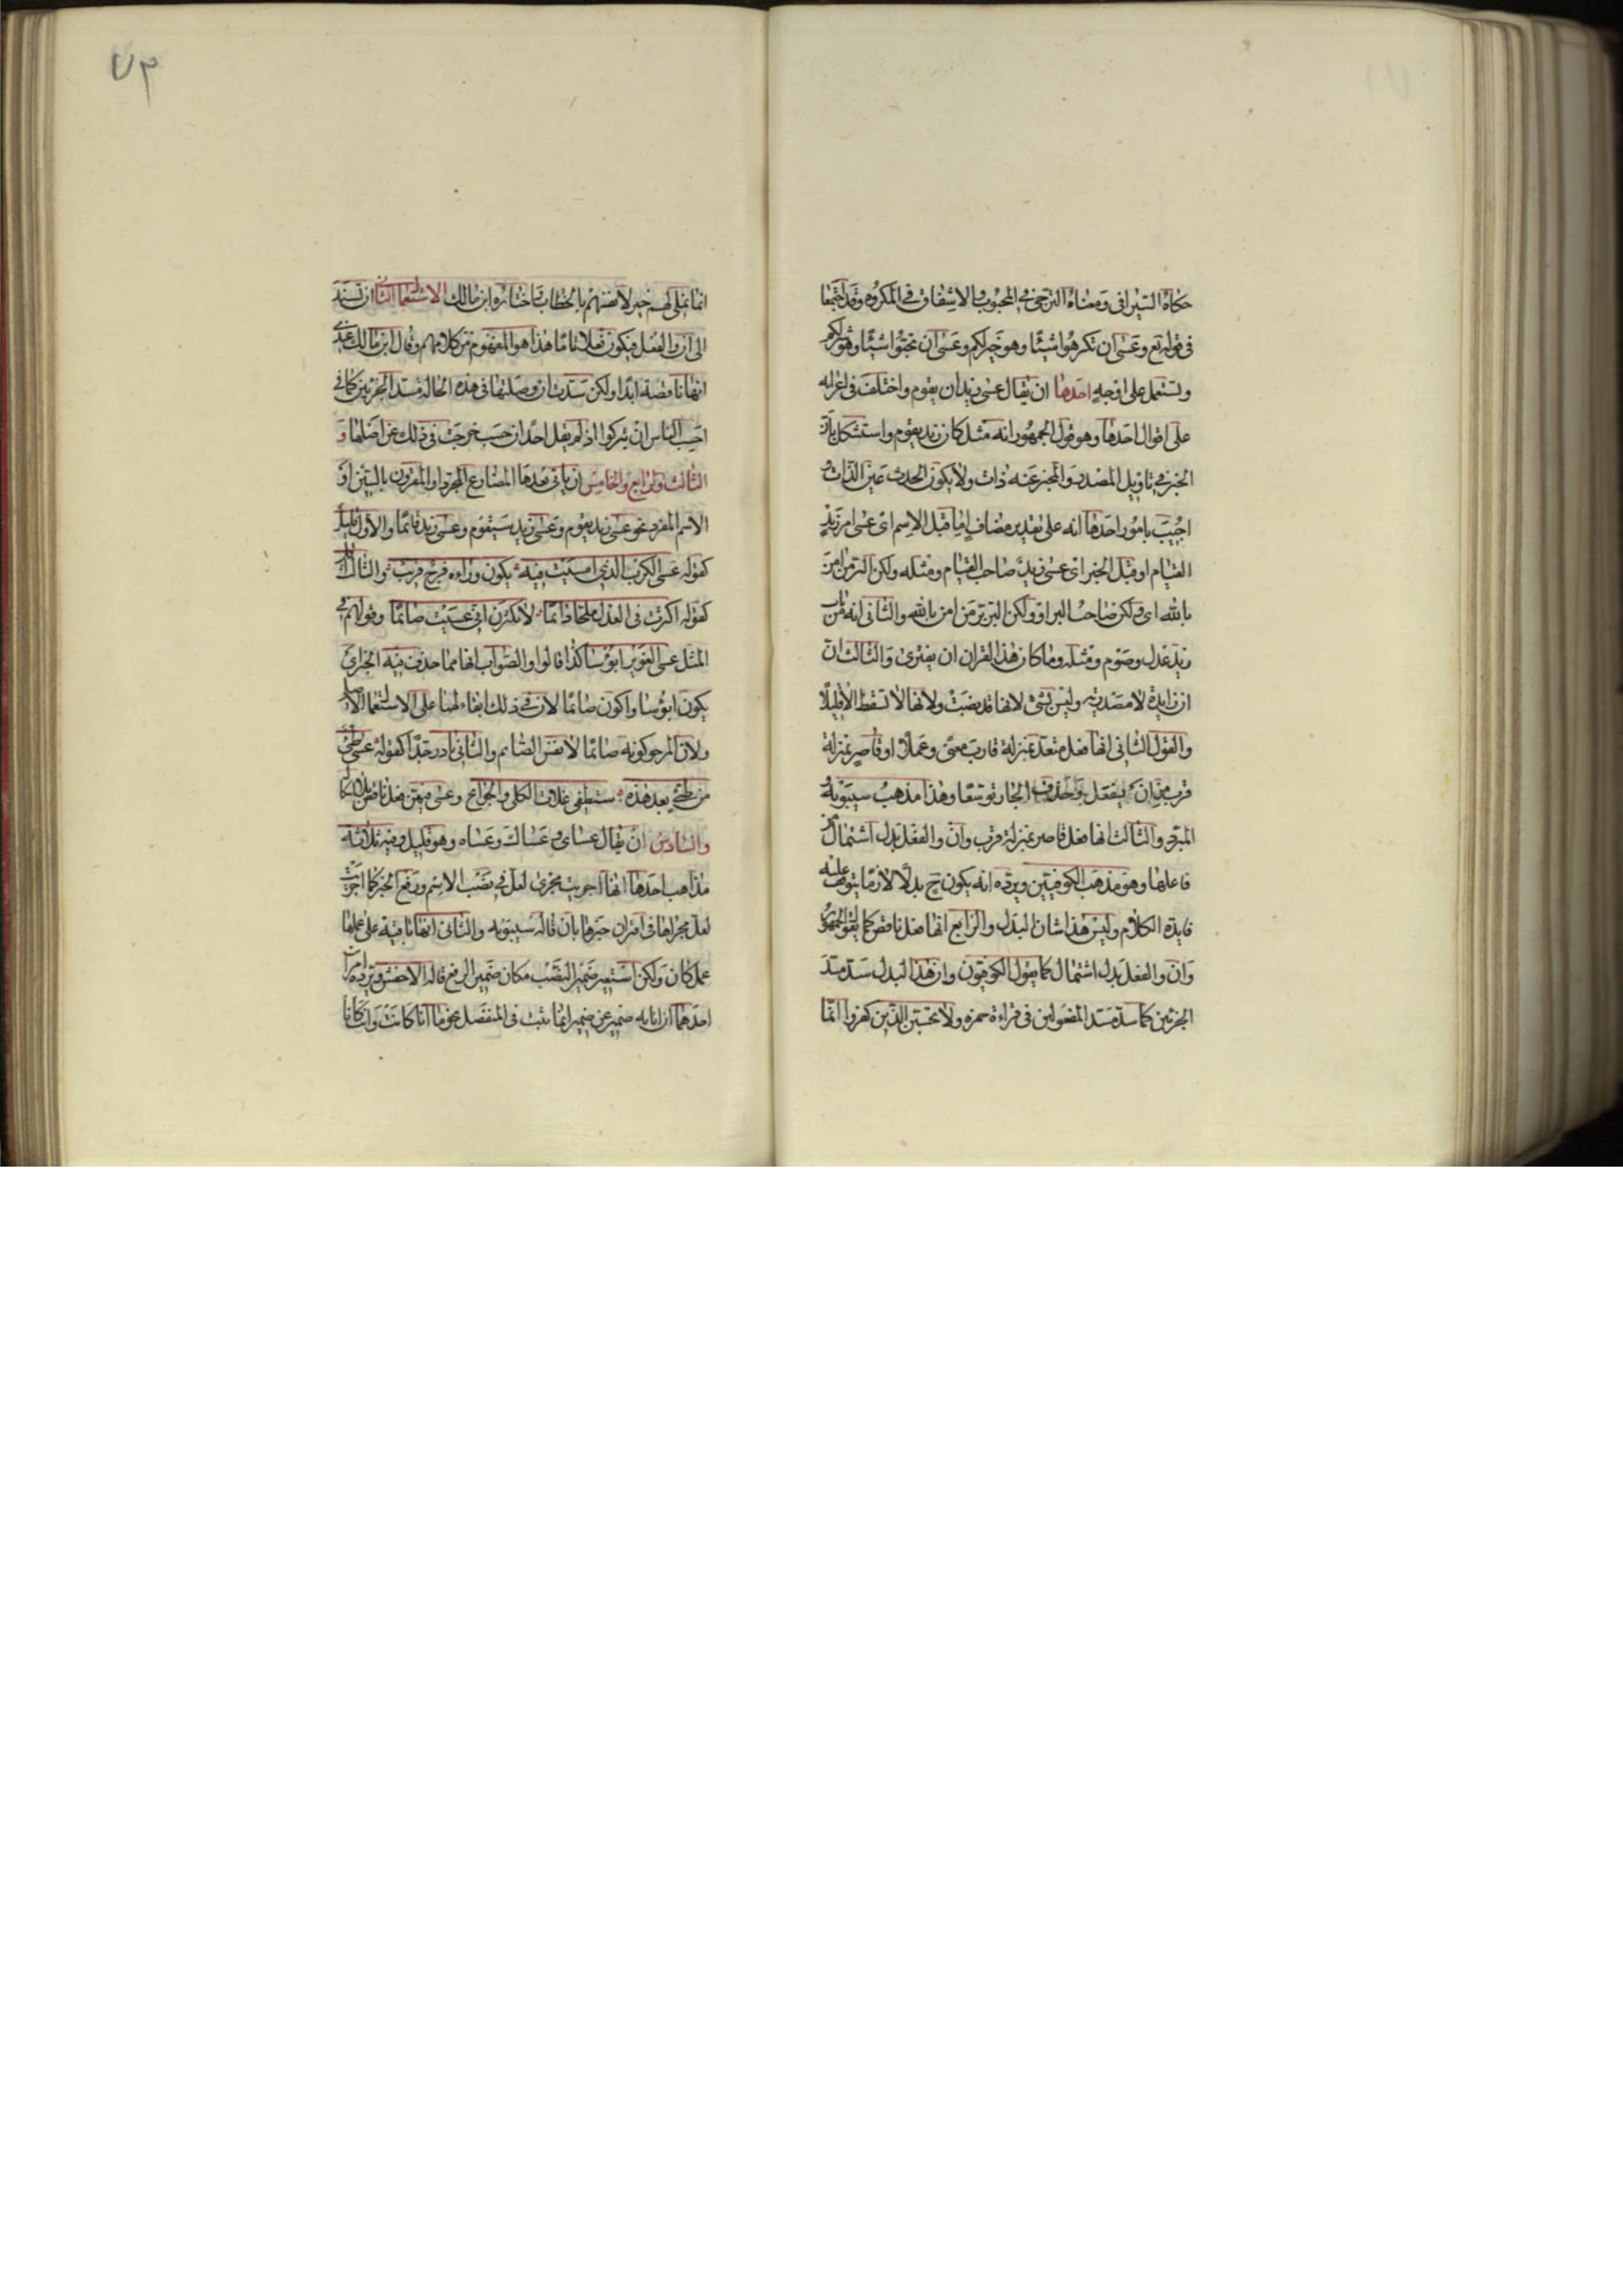 حكاه السيرافى ومعناه الترجى فى المحبوب والاشفاق فى المكروه وقد اجتمعا
فى قوله تع وعسى ان تكرهوا شيئا وهو خير لكم وعسى ان تحبوا شيئا وهو شر لكم
وتستعمل على اوجه احدها ان يقال عسى زيد ان يقوم واختلف فى اعرابه
على اقوال احدها وهو قول الجمهور انه مثل كان زيد يقوم واستشكل بان
الخبر فى تاويل المصدر والمخبر عنه ذات ولا يكون الحدث عين الذات و
اجيب بامور احدها انه على تقدير مضاف اما قبل الاسم اى عسى امر زيد
القيام او قبل الخبر اى عسى زيد صاحب القيام ومثله ولكن البر من امن
بالله اى ولكن صاحب البر او ولكن البر بر من امن بالله والثانى انه من باب
زيد عدل وصوم ومثله وما كان هذا القران ان يفترى والثالث ان
ان زايدة لا مصدرية وليس بشئ لانها قد نصبت ولانها لا تسقط الا قليلا
والقول الثانى انها فعل متعد بمنزلة قارب معنى وعملا او قاصر بمنزلة
قرب من ان يفعل وحذف الجار توسعا وهذا مذهب سيبويه و
المبرد والثالث انها فعل قاصر بمنزلة قرب وان والفعل بدل اشتمال من
فاعلها وهو مذهب الكوفيين ويرده انه يكون ح بدلا لازما يتوقف عليه
فايدة الكلام وليس هذا شان البدل والرابع انها فعل ناقص كما يقول الجمهور
وان والفعل بدل اشتمال كما يقول الكوفيون وان هذا البدل سد مسد
الجزئين كما سد مسد المفعولين فى قراءة حمزه ولا تحسبن الذين كفروا انما
٧٣
انما نملى لهم خير لانفسهم بالخطاب واختاره ابن مالك الاستعمال الثانى ان تسند
الى ان والفعل فيكون فعلا تاما هذا هو المفهوم من كلامهم وقال ابن مالك عندى
انها ناقصة ابدا ولكن سدت ان وصلتها فى هذه الحالة مسد الجزئين كما فى
احسب الناس ان يتركوا اذ لم يقل احد ان حسب خرجت فى ذلك عن اصلها و
الثالث والرابع والخامس ان ياتى بعدها المضارع المجرد او المقرون بالسين او
الاسم المفرد نحو عسى زيد يقوم وعسى زيد سيقوم وعسى زيد قائما والاول قليل
كقوله عسى الكرب الذى امسيت فيه يكون وراءه فرج قريب والثالث اقل
كقوله اكثرت فى العذل ملحا دائما لا تكثرن انى عسيت صائما وقولهم فى
المثل عسى الغوير ابؤسا كذا قالوا والصواب انهما مما حذف فيه الخبر اى
يكون ابؤسا واكون صائما لان فى ذلك ابقاء لهما على الاستعمال الاصلى
ولان المرجو كونه صائما لا نفس الصائم والثانى نادر جدا كقوله عسى طيئ
من طيئ بعد هذه ستطفى غلات الكلى والجوانح وعسى فيهن فعل ناقص بلا اشكال
والسادس ان يقال عساى وعساك وعساه وهو قليل وفيه ثلاثة
مذاهب احدها انها اجريت مجرى لعل فى نصب الاسم ورفع الخبر كما اجريت
لعل مجراها فى اقتران خبرها بان قاله سيبويه والثانى انها باقية على عملها
عمل كان ولكن استعير ضمير النصب مكان ضمير الرفع قاله الاخفش ويرده امران
احدهما ان انابه ضمير عن ضمير انما ثبت فى المنفصل نحو ما انا كانت ولا انت كانا